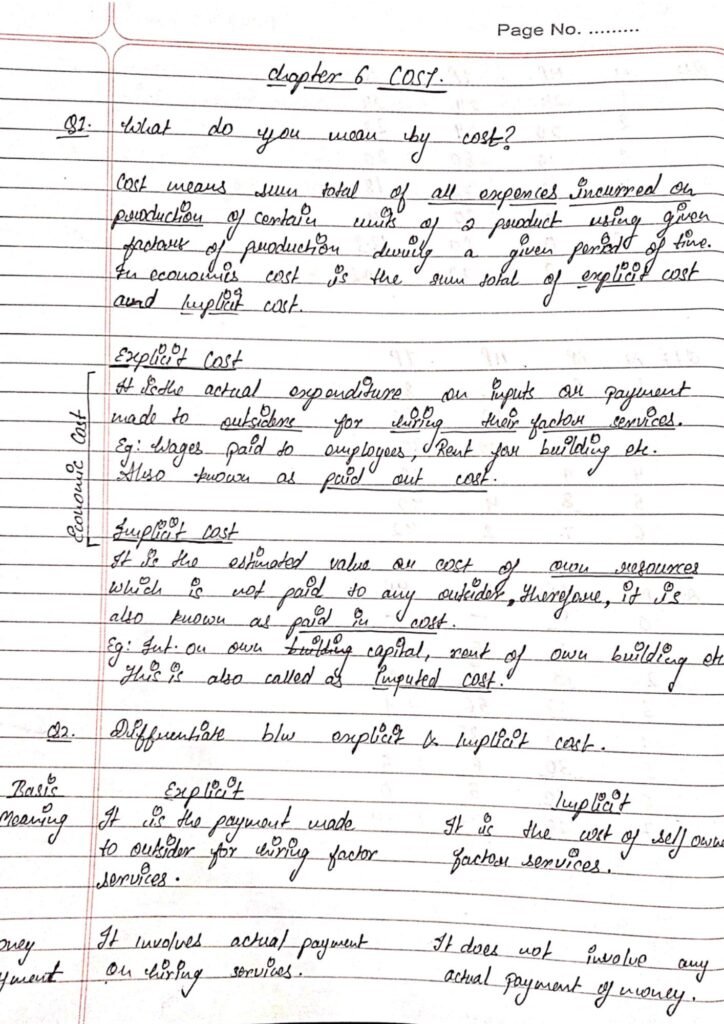 Page No. .........
Chapter 6 COST.
Q1. What do you mean by cost?
Cost means sum total of all expences incurred on
production of certain units of a product using given
factors of production during a given period of time.
In economics cost is the sum total of explicit cost
and Implicit cost.
Economic Cost
Explicit Cost
It is the actual expenditure on inputs or payment
made to outsiders for hiring their factor services.
Eg: Wages paid to employees, Rent for building etc.
Also known as paid out cost.
Implicit cost
It is the estimated value or cost of own resources
which is not paid to any outsider, therefore, it is
also known as paid in cost.
Eg: Int. on own building capital, rent of own building etc
This is also called as Imputed cost.
Q2. Differentiate b/w explicit & Implicit cost.
Basis Explicit Implicit
Meaning It is the payment made It is the cost of self own
to outsider for hiring factor factor services.
services.
oney It involves actual payment It does not involve any
yment on hiring services. actual payment of money.